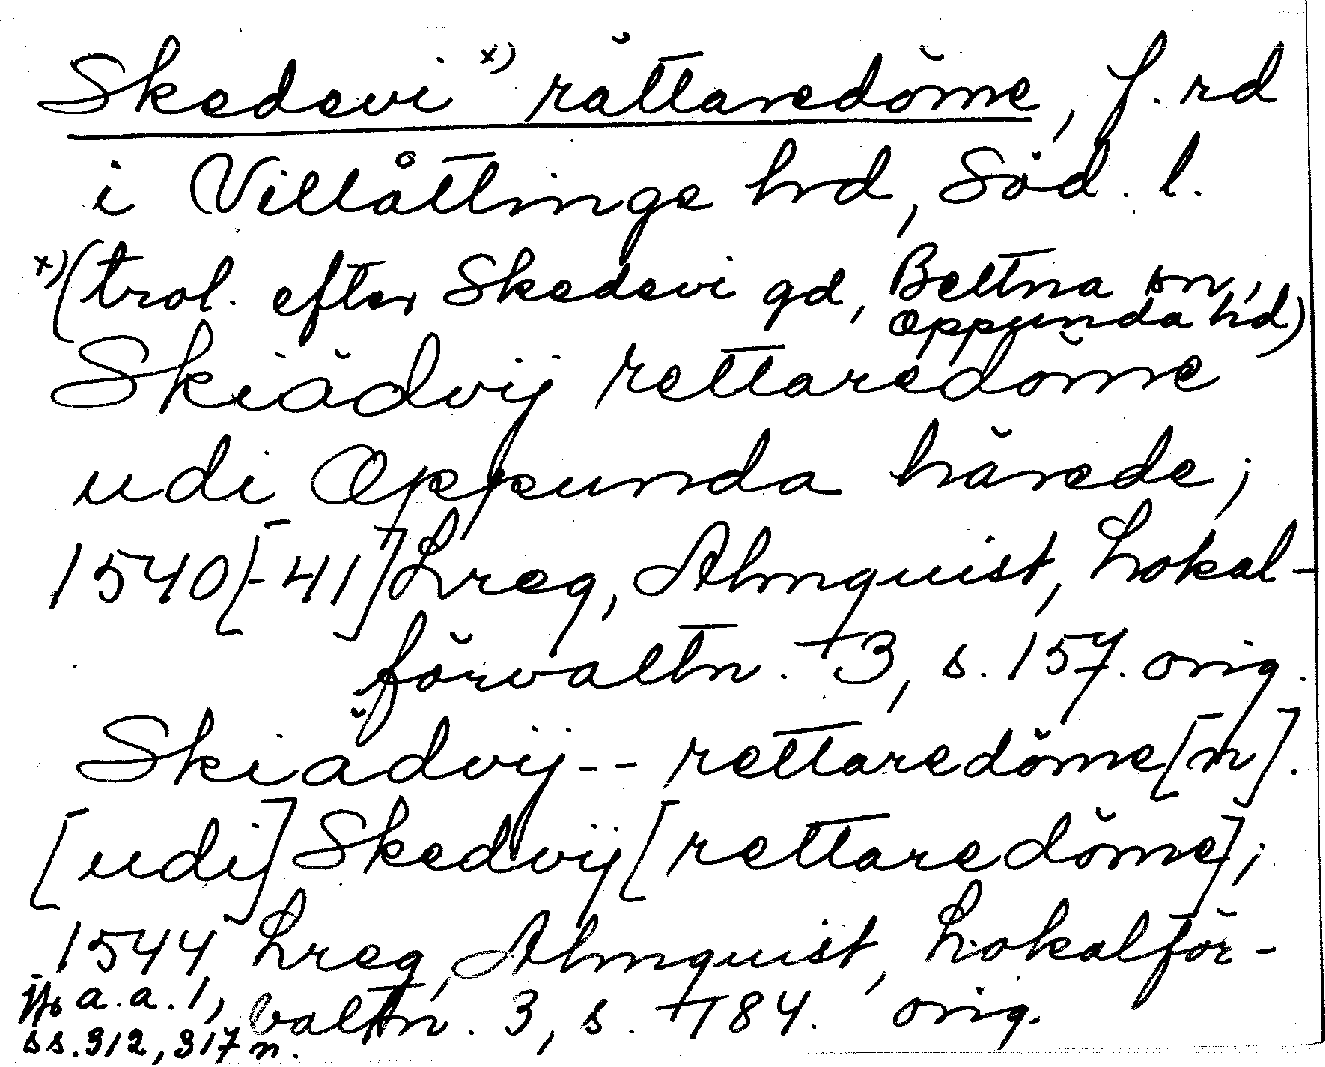 Skedevi x) rättaredöme, f. rd
i Villåttinge hrd, Söd. l.
x) (trol. efter Skedevi gd, Bettna sn,
Oppunda hd)
Skiädvij rettaredöme
udi Oppunda härede;
1540[-41] Lreg, Almquist, Lokal-
förvaltn. 3, s. 157. orig.
Skiädvij -- rettaredöme[n].
[udi] Skedvij [rettaredöme];
1544 Lreg, Almquist, Lokalför-
valtn. 3, s. 184. orig.
jfr a.a. 1,
ss. 312, 317 n.